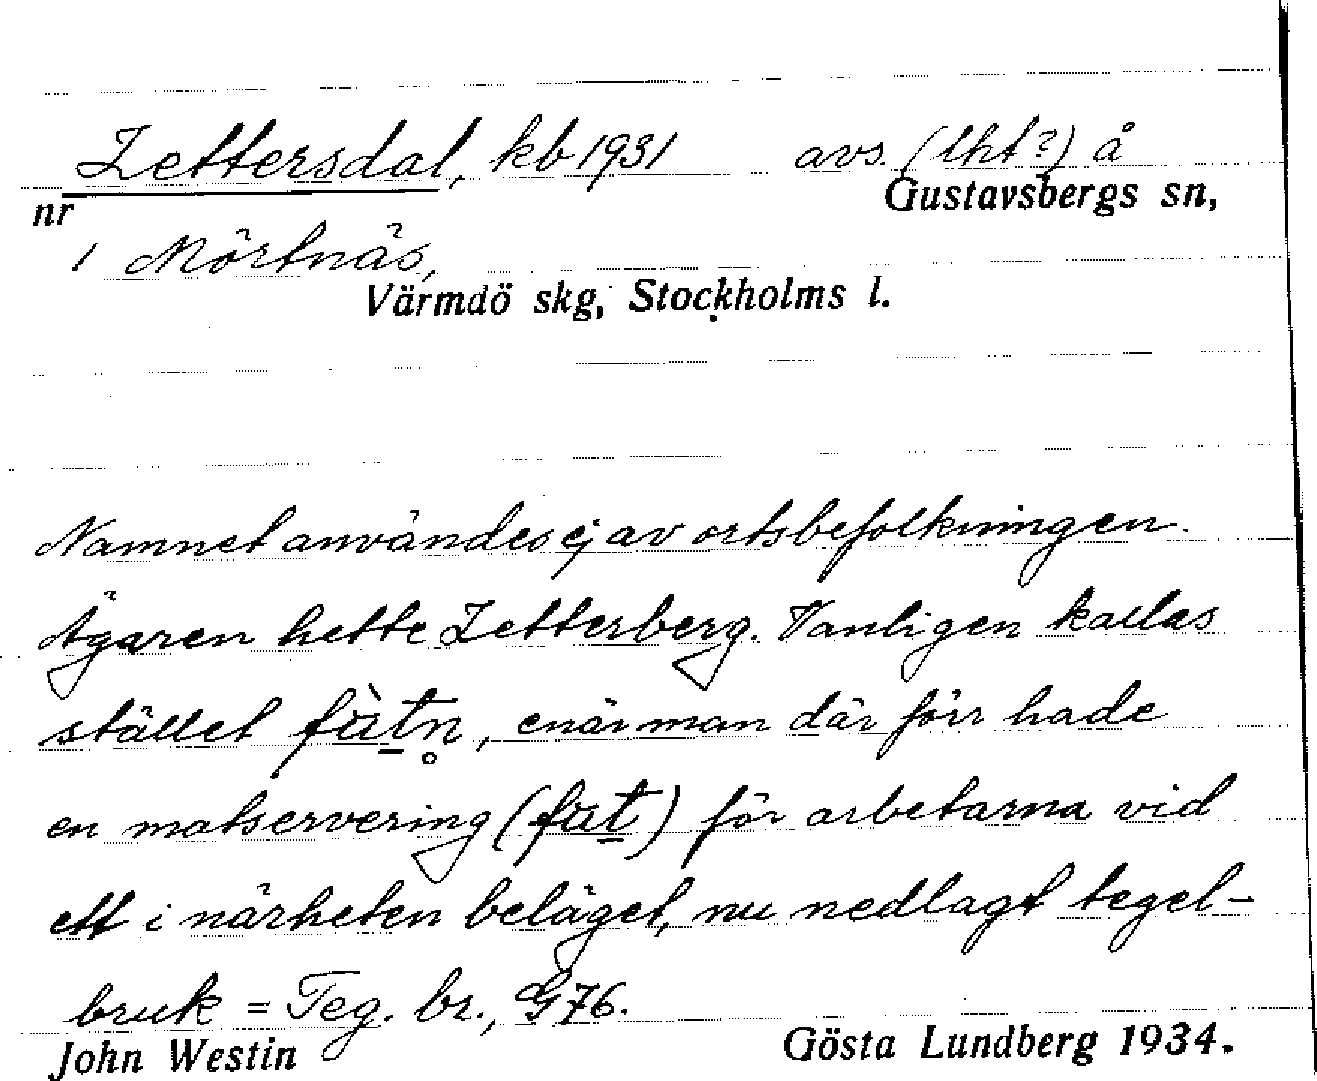 Zettersdal, kb 1931 avs. (lht?) å
nr Gustavsbergs sn,
1 Mörtnäs,
Värmdö skg, Stockholms l.
Namnet användes ej av ortsbefolkningen.
Ägaren hette Zetterberg. Vanligen kallas
stället fùtn̥, enär man där förr hade
en matservering (fut) för arbetarna vid
ett i närheten beläget, nu nedlagt tegel-
bruk = Teg. br., G76.
John Westin Gösta Lundberg 1934.